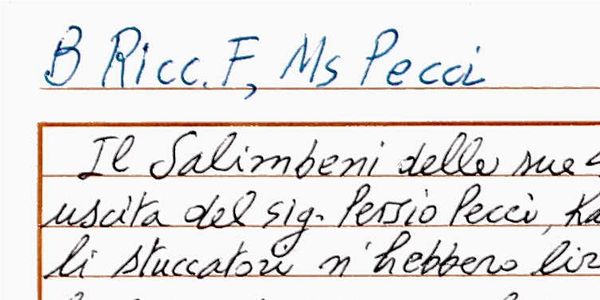 B Ricc. F, Ms Pecci
Il Salimbeni delle sue
uscita del sig. Persio Pecci, Ka
li stuccatori n'hebbero lir